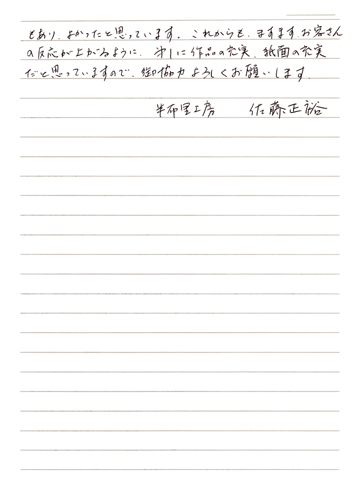 もあり、よかったと思っています。これからも、ますます、お客さん
の反応が上がるように、才1に作品の充実、紙面の充実
だと思っていますので、御協力よろしくお願いします。
半布里工房　佐藤正裕